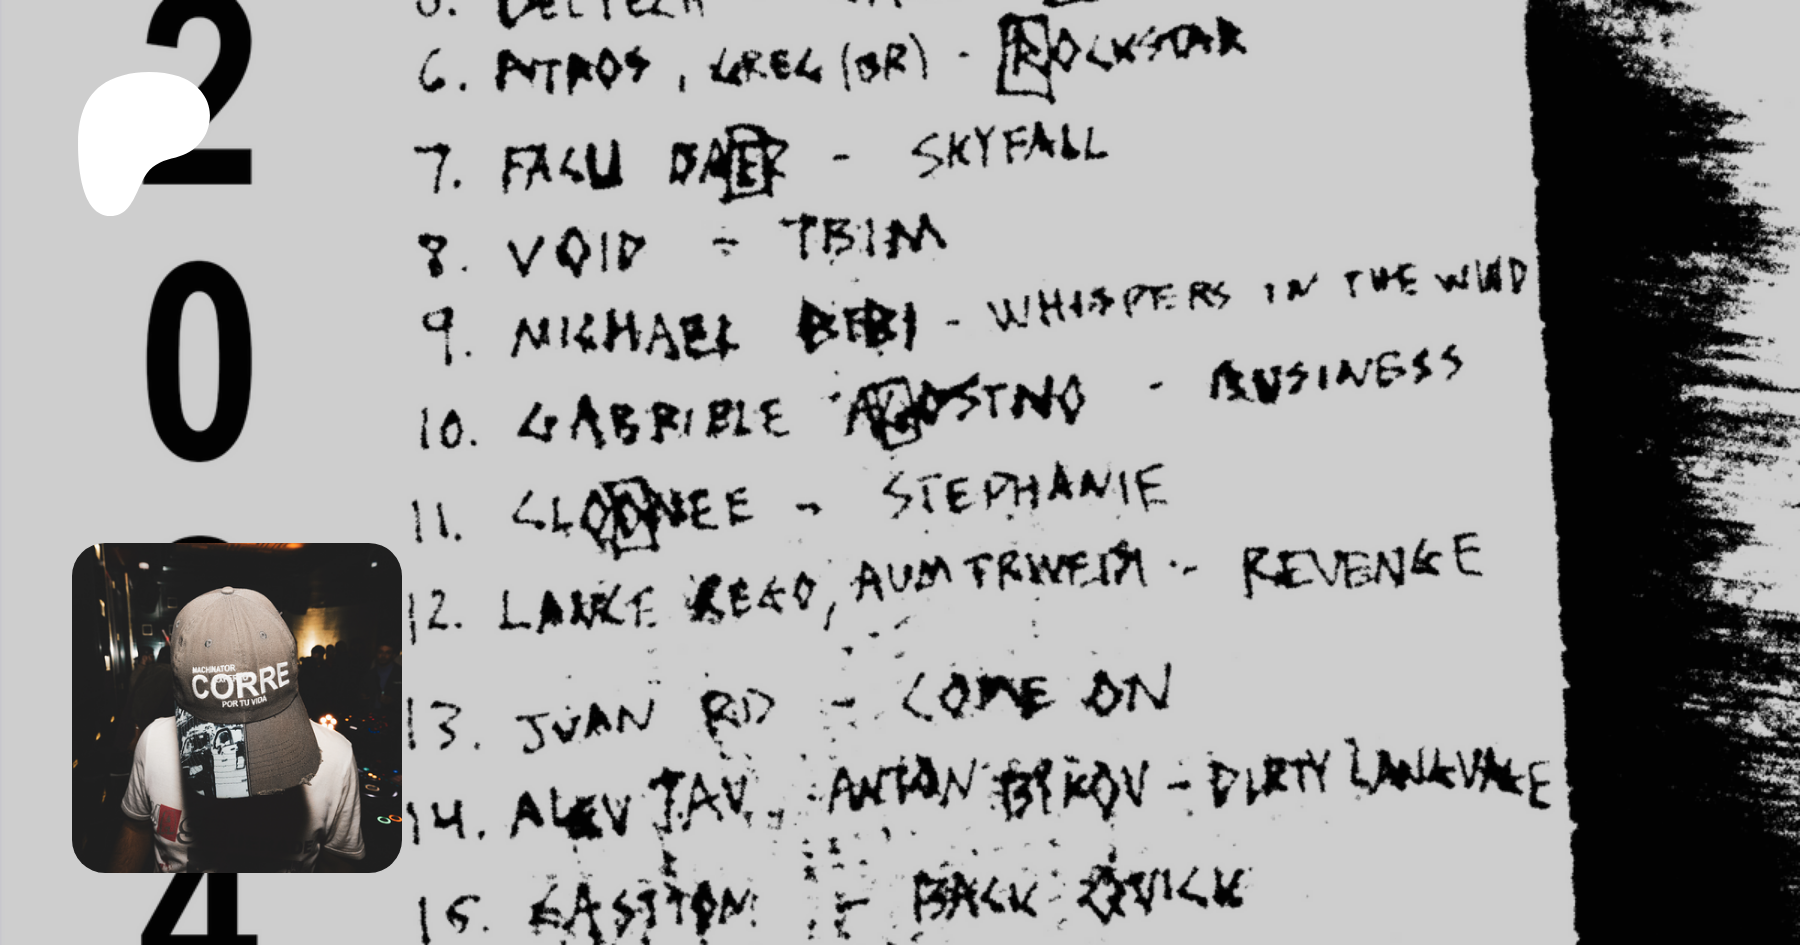 2
0
4
6. PITROS, GREG (BR) - ROCKSTAR
7. FACU BAER - SKYFALL
8. VOID - TBIM
9. MICHAEL BIBI - WHISPERS IN THE WIND
10. GABRIELE AGOSTINO - BUSINESS
11. CLOONEE - STEPHANIE
12. REGO, - REVENGE
13. JUAN RD - COME ON
14. ALEV TAV, ANTON BYKOV - DIRTY LANGUAGE
15. GASTTON - BACK QUICK
MACHINATOR
CORRE
POR TU VIDA